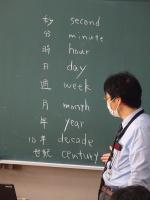 秒 second
分 minute
時 hour
日 day
週 week
月 month
年 year
10年 decade
世紀 century